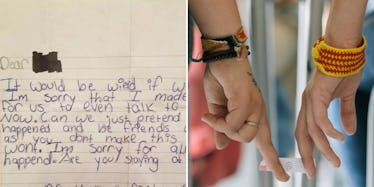 Dear
It would be wird if w
I'm sorry that I made
for us to even talk to
Now. Can we just pretend
happened and be friends a
as if you dont make this
wont. I'm sorry for al
happend. Are you staying at